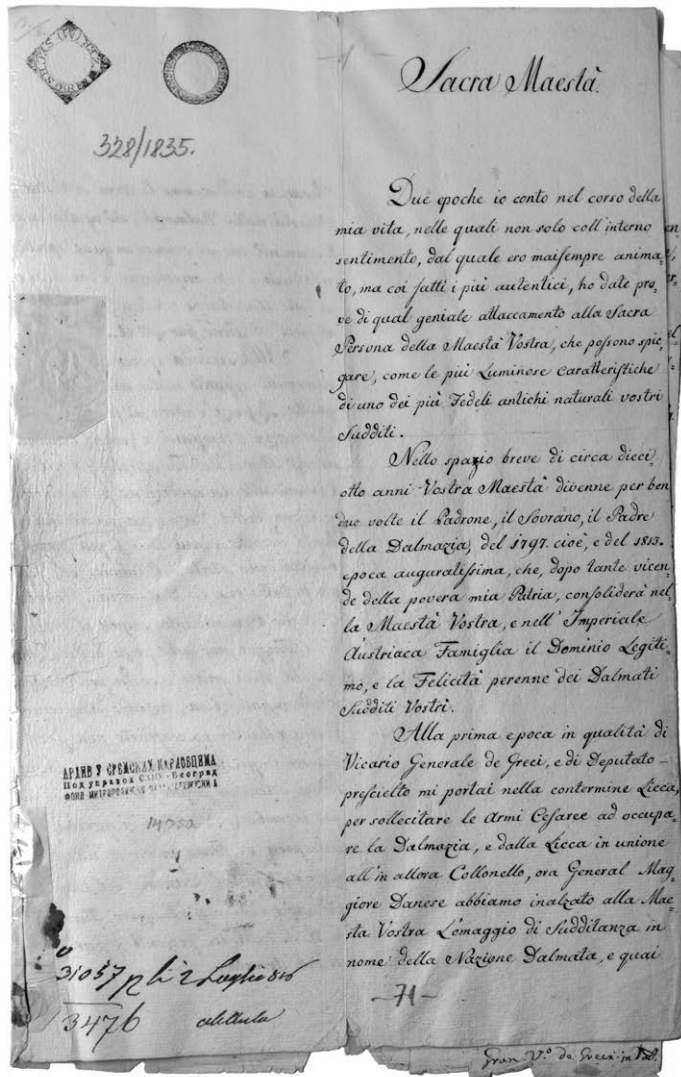 328/1835.
Sacra Maestà.
Due epoche io conto nel corso della
mia vita, nelle quali non solo coll'interno
sentimento, dal quale ero maisempre anima=
to, ma coi fatti i più autentici, ho date pro=
ve di qual geniale attaccamento alla Sacra
Persona della Maestà Vostra, che possono spie=
gare, come le più Luminose caratteristiche
di uno dei più Fedeli antichi naturali vostri
Sudditi.
Nello spazio breve di circa dieci=
otto anni Vostra Maestà divenne per ben
due volte il Padrone, il Sovrano, il Padre
della Dalmazia, del 1797. cioè, e del 1813.
epoca auguratissima, che, dopo tante vicen=
de della povera mia Patria, consoliderà nel=
la Maestà Vostra, e nell'Imperiale
Austriaca Famiglia il Dominio Legiti=
mo, e la Felicità perenne dei Dalmati
Sudditi Vostri.
Alla prima epoca in qualità di
Vicario Generale de Greci, e di Deputato
prescielto mi portai nella contermine Licca,
per sollecitare le Armi Cesaree ad occupa=
re la Dalmazia, e dalla Licca in unione
all'in allora Collonello, ora General Mag=
giore Danese abbiamo inalzato alla Mae=
sta Vostra L'omaggio di Sudditanza in
nome della Nazione Dalmata, e quai
-71-
АРХИВ У СРЕМСКИМ КАРЛОВЦИМА
Под управом САНУ - Београд
31057 2 Luglio
13476